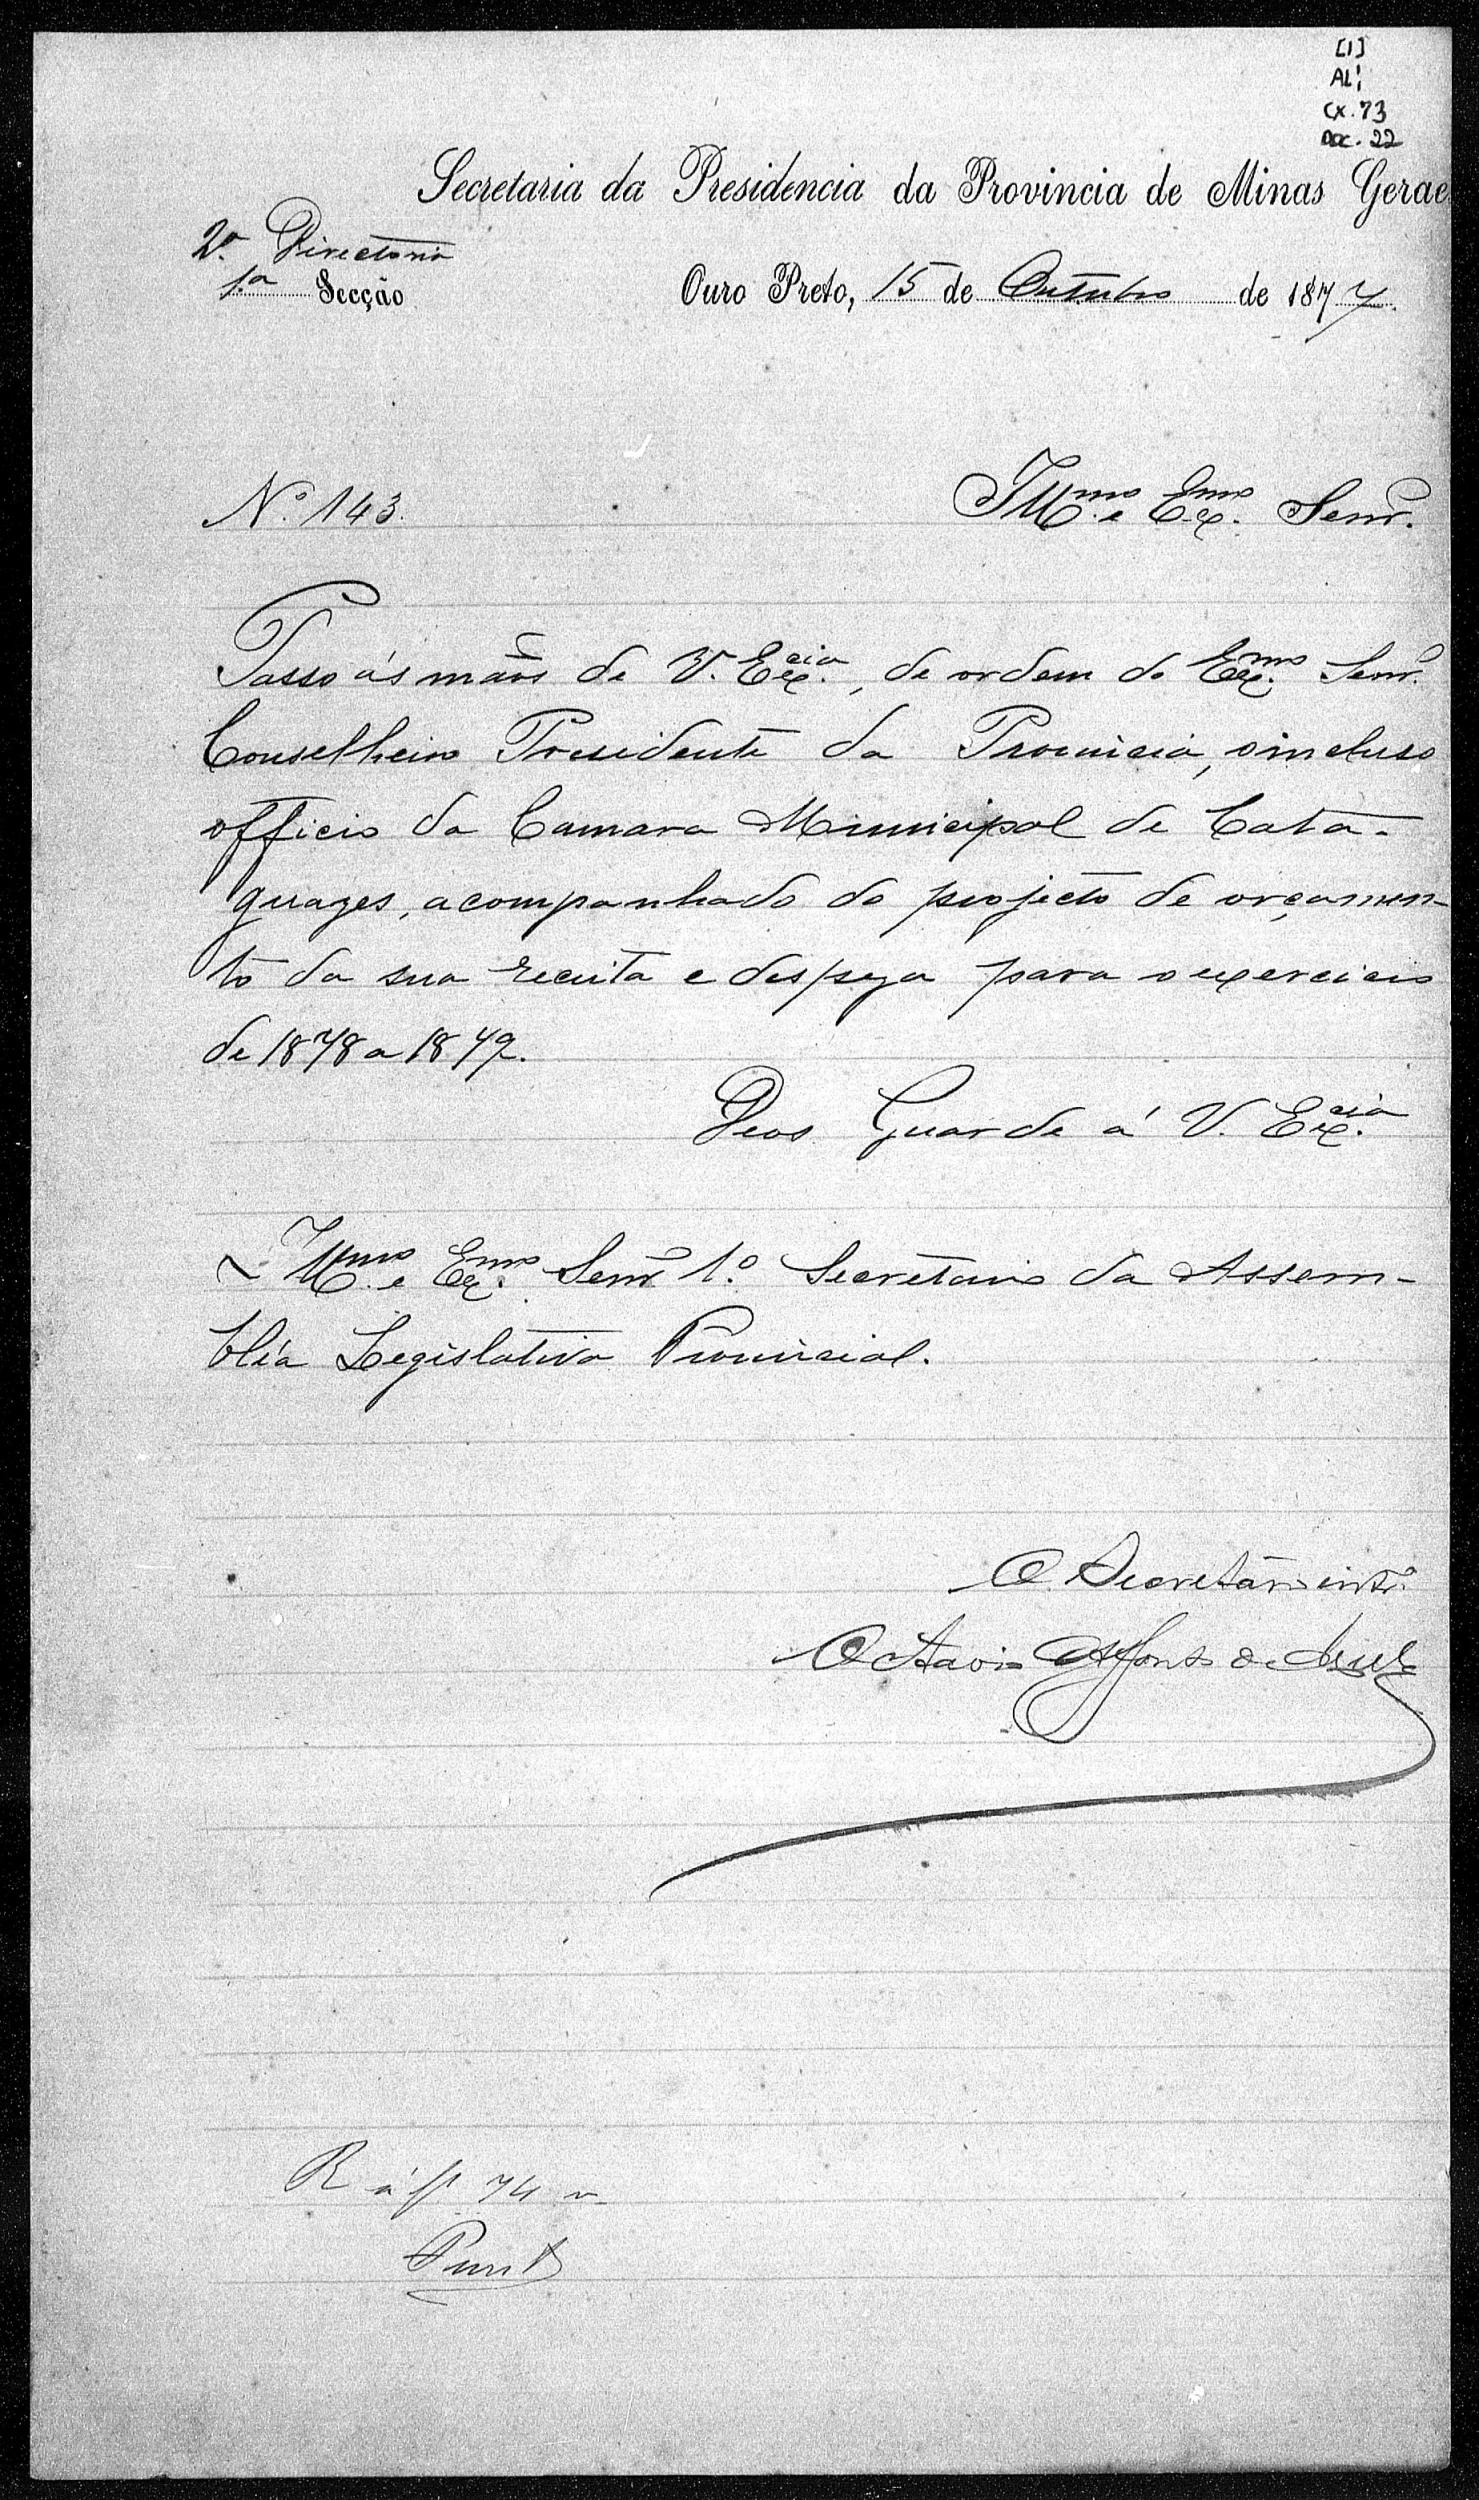 [1]
AL¹
CX. 73
DOC. 22
Secretaria da Presidencia da Provincia de Minas Gerae
2ª Directoria
1.ª Secção
Ouro Preto, 15 de Outubro de 1877.
Nº. 143.
Illmo. e Exmo. Senr.
Passo ás mãos de V. Excia., de ordem do Exmo. Senr.
Conselheiro Presidente da Provincia, o incluso
officio da Camara Municipal de Cata-
guazes, acompanhado do projecto de orçamen-
to da sua receita e despeza para o exercicio
de 1878 a 1879.
Deos Guarde á V. Excia.
Illmo. e Exmo. Senr. 1º. Secretario da Assem-
bléa Legislativa Provincial.
O Secretario intº.
Octavio Affonso de
R á f 74 v